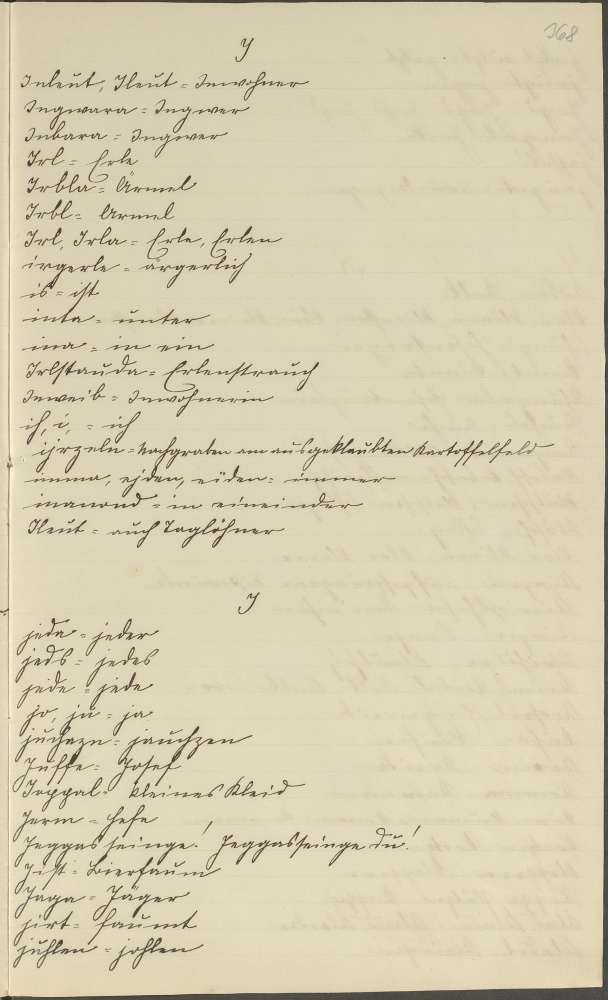 368
J
Inleut, Ileut = Inwohner
Ingwara = Ingwer
Inbara = Ingwer
Irl = Erle
Irbla = Ärmel
Irbl = Ärmel
Irl, Irla = Erle, Erlen
irgerle = ärgerlich
is = ist
inta = unter
ina = in ein
Irlstauda = Erlenstrauch
Inweib = Inwohnerin
ih, i, = ich
ijrzeln = Nachgraben am ausgeklaubten Kartoffelfeld
imma, ejden, eiden = immer
inanond = in eineinder
Ileut = auch Taglöhner
J
jeda = jeder
jeds = jedes
jede = jede
jo, ju = ja
juchazn = jauchzen
Juffe = Josef
Joppal = kleines Kleid
Jerm = Hefe
Jeggasseinge! Jeggasseinge du!
Jist = Bierfaum
Jaga = Jäger
jirt = faumt
juhlen = johlen